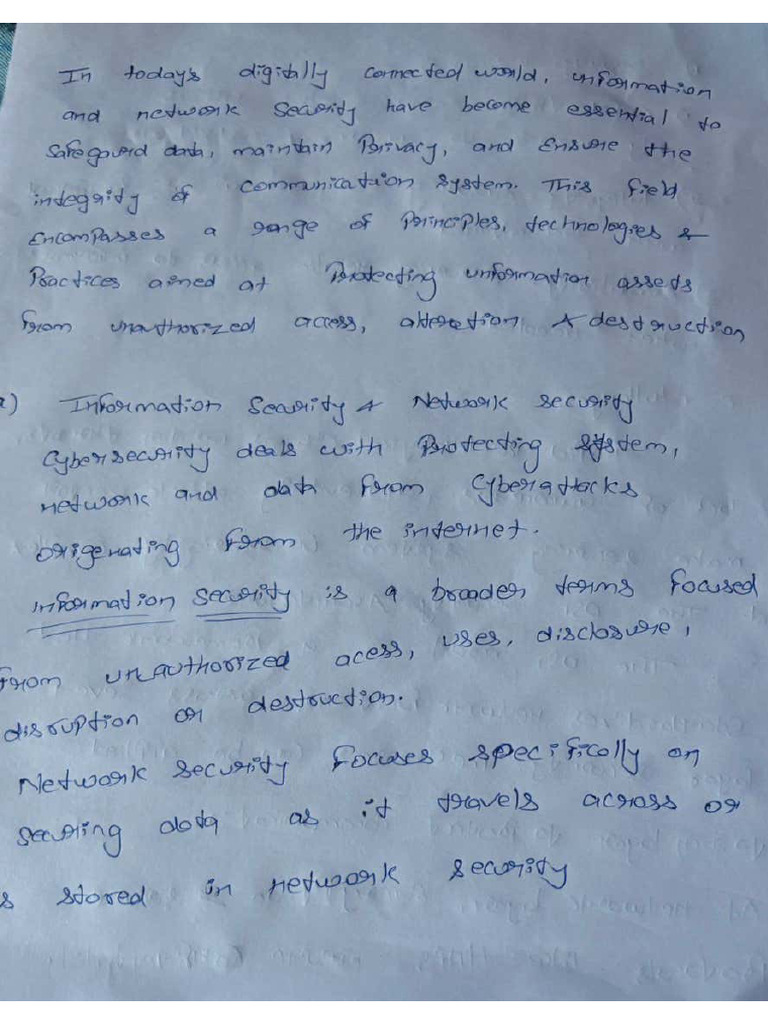 In today's digitally connected world, information
and network security have become essential to
safeguard data, maintain Privacy, and Ensure the
integrity of communication system. This field
Encompasses a range of Principles, technologies &
Practices aimed at Protecting information assets
from unauthorized access, alteration & destruction
a) Information Security & Network security
Cybersecurity deals with Protecting system,
network and data from Cyberattacks
origenating from the internet.
information security is a broader terms focused
from unauthorized acess, uses, disclosure,
disruption or destruction.
Network security focuses specifically on
securing data as it travels across or
is stored in network security